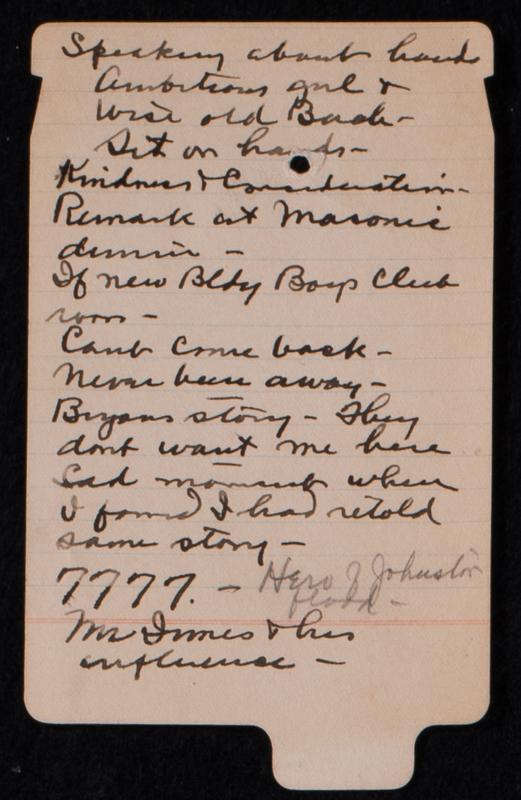 Speaking about hands
Ambitious girl &
Wise old Bach -
Sit on hands -
Kindness & Consideration -
Remark at Masonic
dinner -
If new Bldg Boys Club
room -
Cant come back -
Never been away -
Bryans story - They
dont want me here
Sad moment when
I found I had retold
same story -
7777. - Hero of Johnston
flood -
Mr Innes & his
influence -